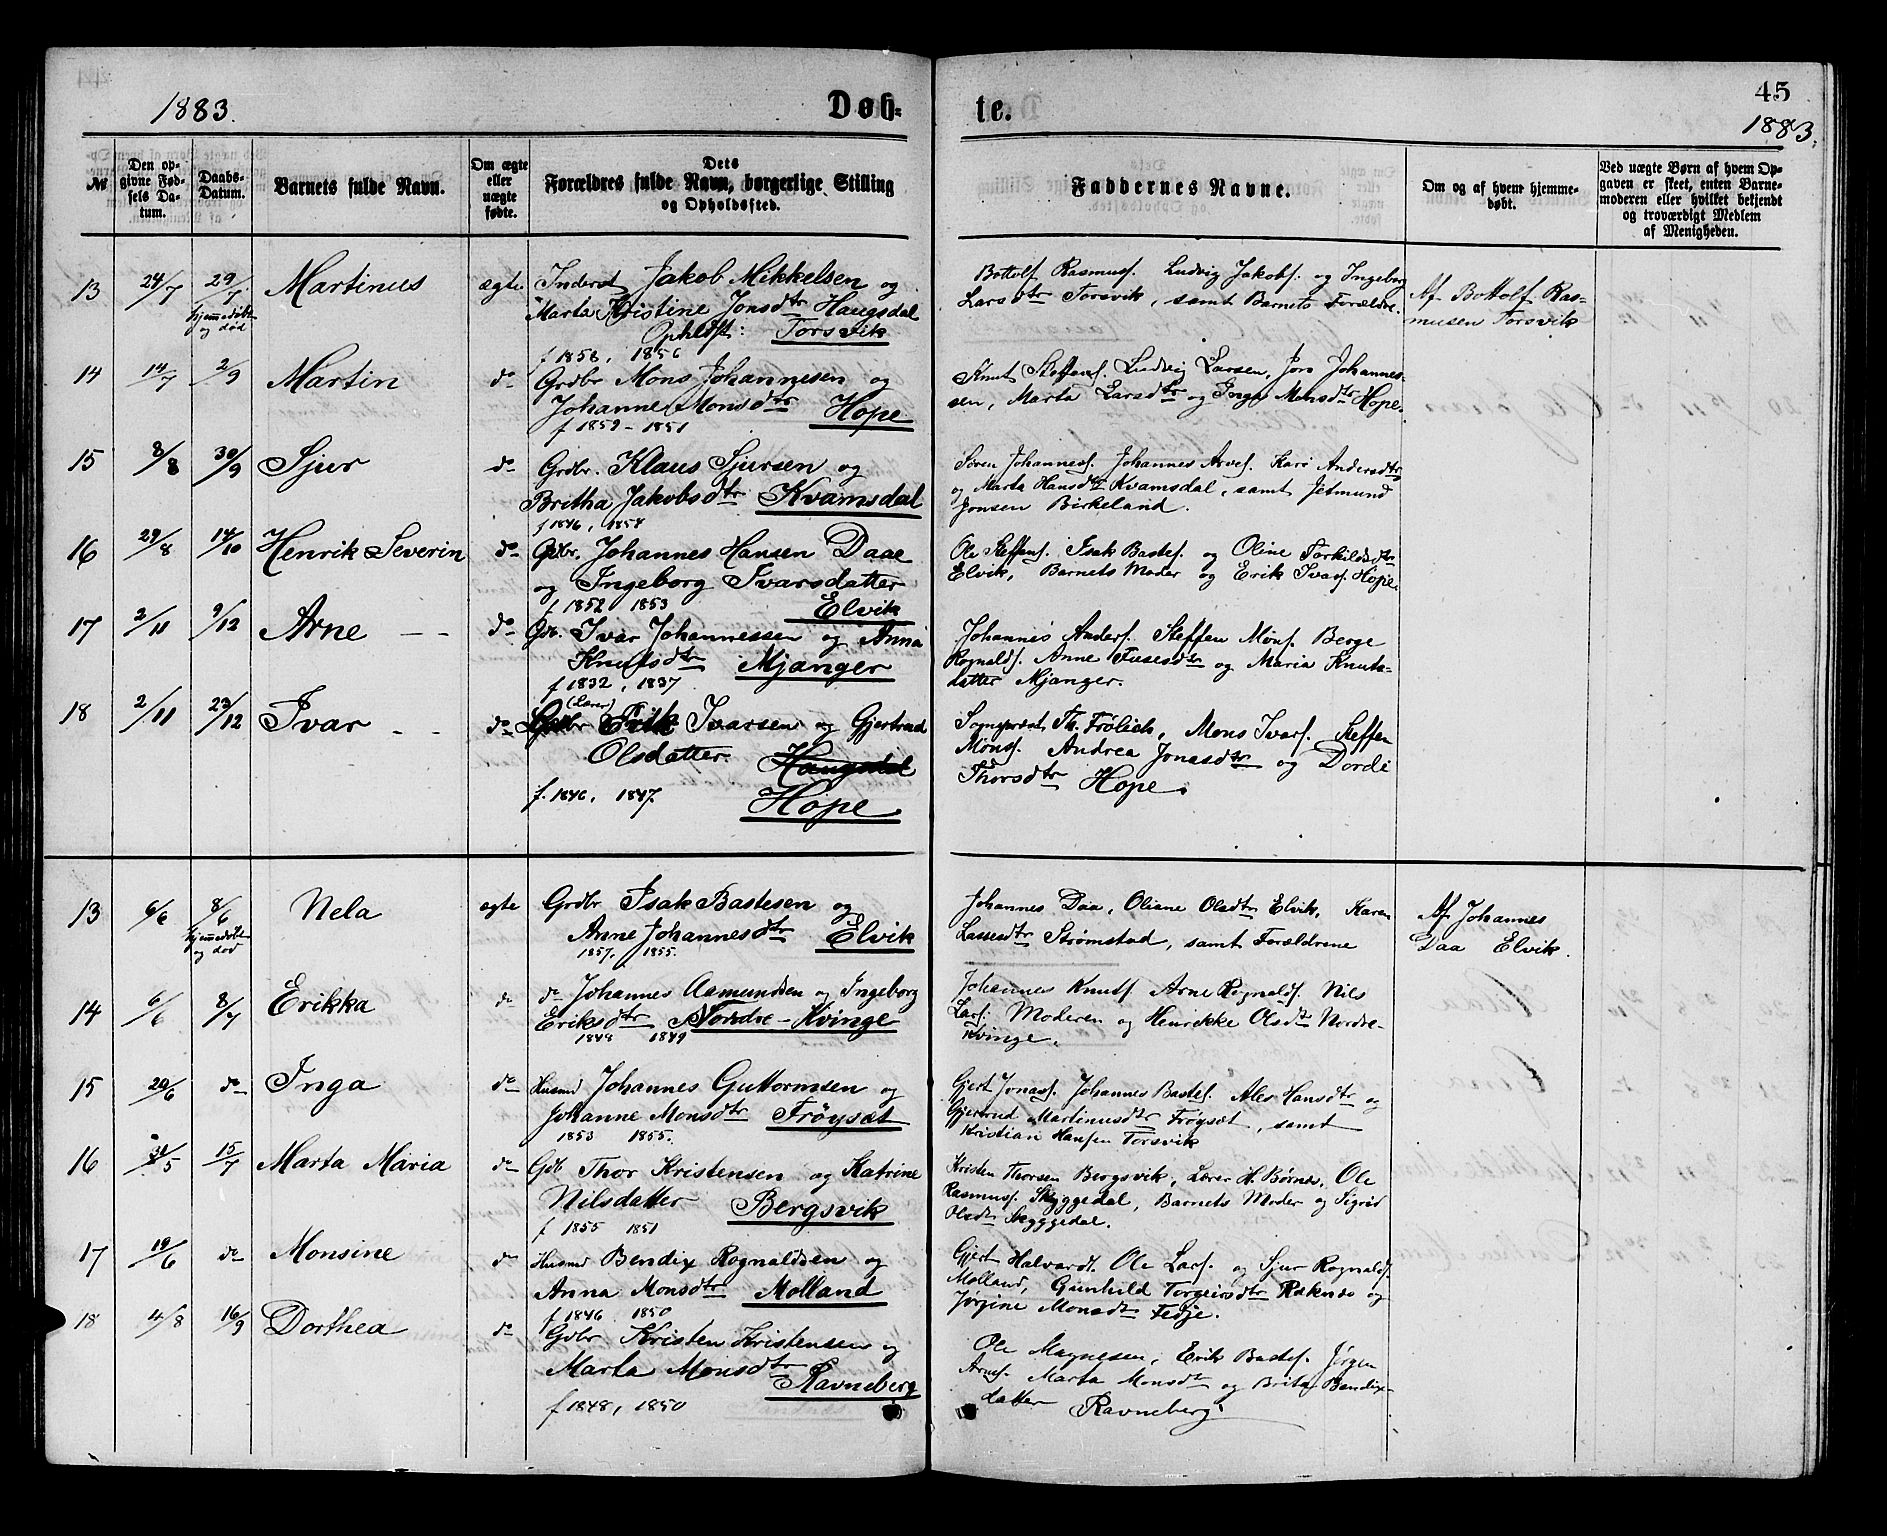 45
1883.
Døb-
te.
1883.
№
Den op-
givne Fød-
sels Da-
tum.
Daabs-
Datum.
Barnets fulde Navn.
Om ægte
eller
uægte
fødte.
Dets
Forældres fulde Navn, borgerlige Stilling
og Opholdssted.
Faddernes Navne.
Om og af hvem hjemme-
døbt.
Ved uægte Børn af hvem Op-
gaven er skeet, enten Barne-
moderen eller hvilket bekjendt
og troværdigt Medlem
af Menigheden.
13 24/7 29/7 Martinus ægte Inderst Jakob Mikkelsen og
hjemmedøbt
og død
Marta Kristine Jonsdtr Haugsdal
Opholdst: Torsvik
f 1858, 1856
Bottolf Rasmusf. Ludvig Jakobf. og Ingeborg
Larsdtr Torsvik, samt Barnets Forældre.
Af Bottolf Ras-
musen Torsvik
14 14/7 2/9 Martin do Grdbr Mons Johannesen og
Johanne Monsdtr Hope
f 1859 - 1851
Knut Steffensf. Ludvig Larsen, Jon Johannes-
sen, Marta Larsdtr og Inga Monsdtr Hope.
15 8/8 30/9 Sjur do Grdbr. Klaus Sjursen og
Britha Jakobsdtr Kvamsdal
f 1846, 1858
Søren Johannesf. Johannes Arnef. Kari Andersdtr
og Marta Hansdtr Kvamsdal, samt Jetmund
Jonsen Birkeland.
16 29/8 14/10 Henrik Severin do Gdbr. Johannes Hansen Daae
og Ingeborg Ivarsdatter
f 1852 1853 Elvik
Ole Steffensf. Isak Bastef. og Oline Torkildsdtr
Elvik, Barnets Moder og Erik Ivarf. Hope.
17 2/11 9/12 Arne do Gdb. Ivar Johannessen og Anna
Knutsdtr Mjanger
f 1832, 1837
Johannes Andersf. Steffen Monsf. Berge
Rognaldf. Anne Tuesdtr og Maria Knuts-
datter Mjanger.
18 2/11 23/12 Ivar do
(Lærer)
Erik Ivarsen og Gjertrud
Olsdatter. Haugsdal
f. 1846, 1847. Hope
Sognepræst Th. Frölich, Mons Ivarf. Steffen
Monsf. Andrea Jonasdtr og Dorde
Thorsdtr Hope.
13 6/6 8/6 Nela ægte Grdbr Isak Bastesen og
hjemmedøbt
og død
Anne Johannesdtr Elvik
1857. 1855.
Johannes Daa, Oliane Olsdtr Elvik, Karen
Lassesdtr Strømstad, samt Forældrene
Af Johannes
Daa Elvik.
14 6/6 8/7 Erikka do do Johannes Aamundsen og Ingeborg
Eriksdtr Nordre-Kvinge
1848 1849
Johannes Knutf Arne Rognaldf. Nils
Larsf. Moderen og Henrikke Olsdtr Nordre-
Kvinge.
15 20/6 do Inga do Husmd Johannes Guttormsen og
Johanne Monsdtr Frøyset
1853 1855.
Gjert Jonasf. Johannes Bastef. Ales Hansdtr og
Gjertrud Martinusdtr Frøyset, samt
Kristian Hansen Torsvik
16 31/5 15/7 Marta Maria do Gdb Thor Kristensen og Katrine
Nilsdatter Bergsvik
f 1855 1851
Kristen Thorsen Bergsvik, Lærer H. Børnes, Ole
Rasmusf. Skyggedal, Barnets Moder og Sigrid
Olsdtr Skyggedal.
17 19/6 do Monsine do Husmd Bendix Rognaldsen og
Anna Monsdtr Molland
f 1846 1850
Gjert Halvardf. Ole Larsf. og Sjur Rognaldf.
Molland, Gunhild Torgeirsdtr Räknes og
Jørgine Monsdtr Fedje.
18 4/8 16/9 Dorthea do Gdbr Kristen Kristensen og
Marta Monsdtr Ravneberg
f 1848, 1850
Ole Magnesen, Erik Bastef. Jörgen
Arnef. Marta Monsdtr og Brita Bendix-
datter Ravneberg.